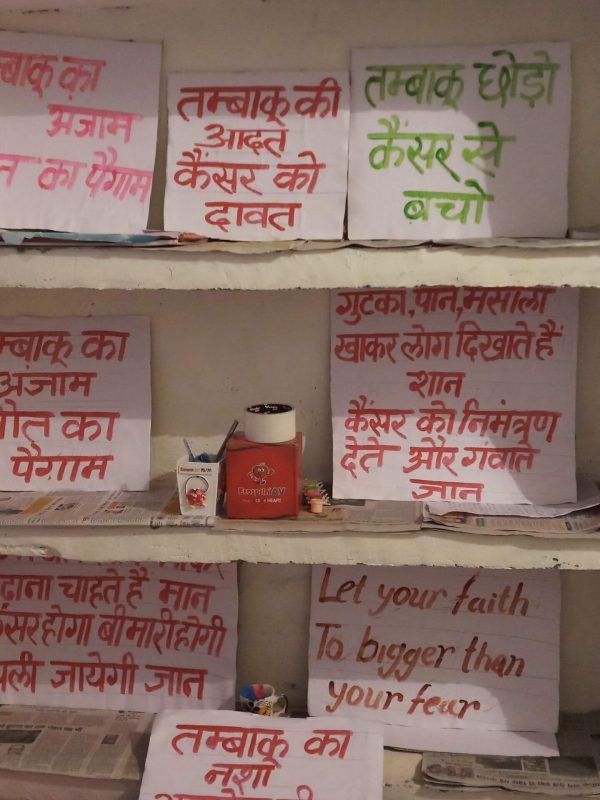 का
अंजाम
का पैगाम
तम्बाकू की
आदत
कैंसर को
दावत
तम्बाकू छोड़ो
कैंसर से
बचो
का
अंजाम
का
पैगाम
गुटका, पान, मसाला
खाकर लोग दिखाते हैं
शान
कैंसर को निमंत्रण
देते और गंवाते
जान
चाहते है मान
होगा बीमारी होगी
जायेगी जान
Let your faith
To bigger than
your fear
तम्बाकू का
नशा